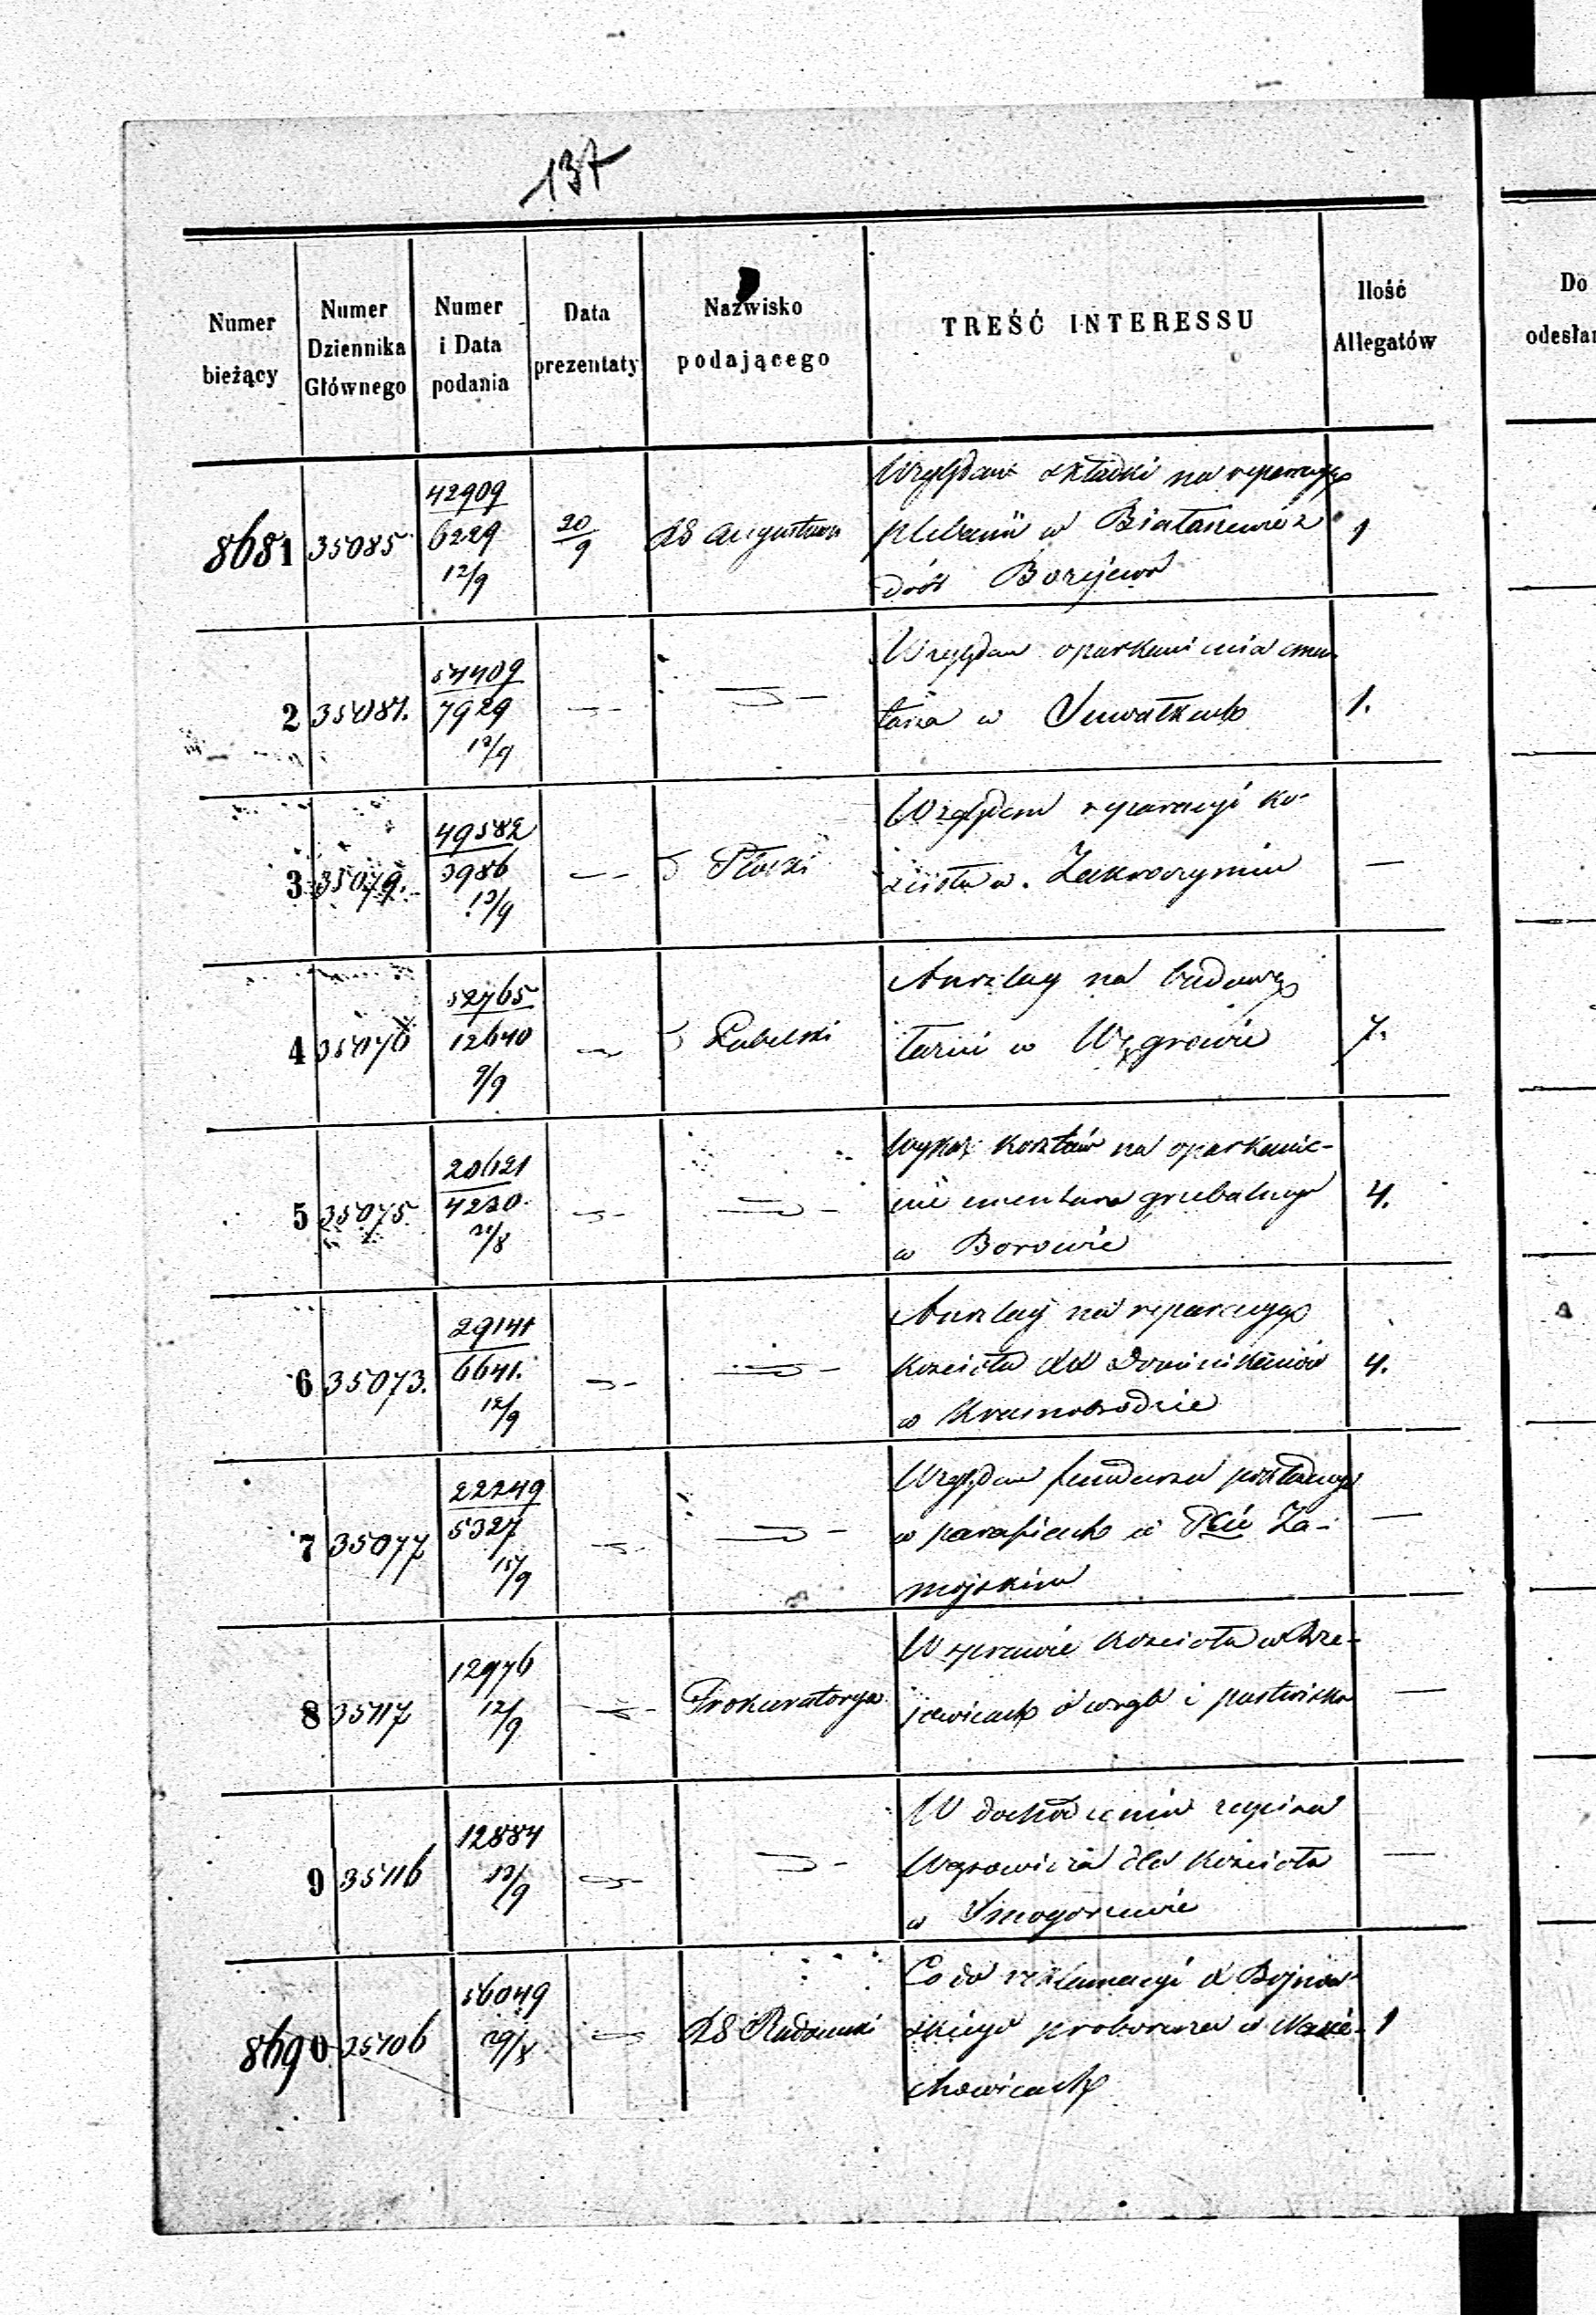 137
Numer bieżący
Numer Dziennika Głównego
Numer i Data podania
Data prezentaty
Nazwisko podającego
TREŚĆ INTERESSU
Ilość Allegatów
Do odesłan
8681 35085 42909 6229 12/9 20/9 RG Augustows
Względem składki na reparacyę
plebanii w
dóbr Borzęcin 1
2 35081. 54409 7929 12/9 — —
Względem oparkanienia cmen
tarza w Suwałkach 1.
3 35079. 49582 3986 13/9 — Płocki
Względem reparacyi ko-
ścioła w Zakroczymiu —
4 35070 52765 12640 9/9 — Lubelski
Anszlag na budowę
w Węgrowie 7.
5 35075. 20621 4230. 21/8 — —
Wykaz kosztów na oparkanie-
nie cmentarza grzebalnego
w Borowie 4.
6 35073. 29141 6641. 12/9 — —
Anszlag na reparacyę
kościoła XX Dominikanów
w Krasnobrodzie 4.
7 35077 22249 5327 15/9 — —
Względem funduszu
w parafiach w Pcie Za-
mojskim —
8 35117 12976 12/9 — Prokuratorya
W sprawie kościoła w
i pastwisko —
9 35116 12884 13/9 — —
W dochodzeniu zapisu
dla kościoła
w Smogorzewie —
8690 35106 56049 29/8 — RG Radomski
Co do reklamacyi X Bojnow-
skiego proboszcza w
chowicach 1